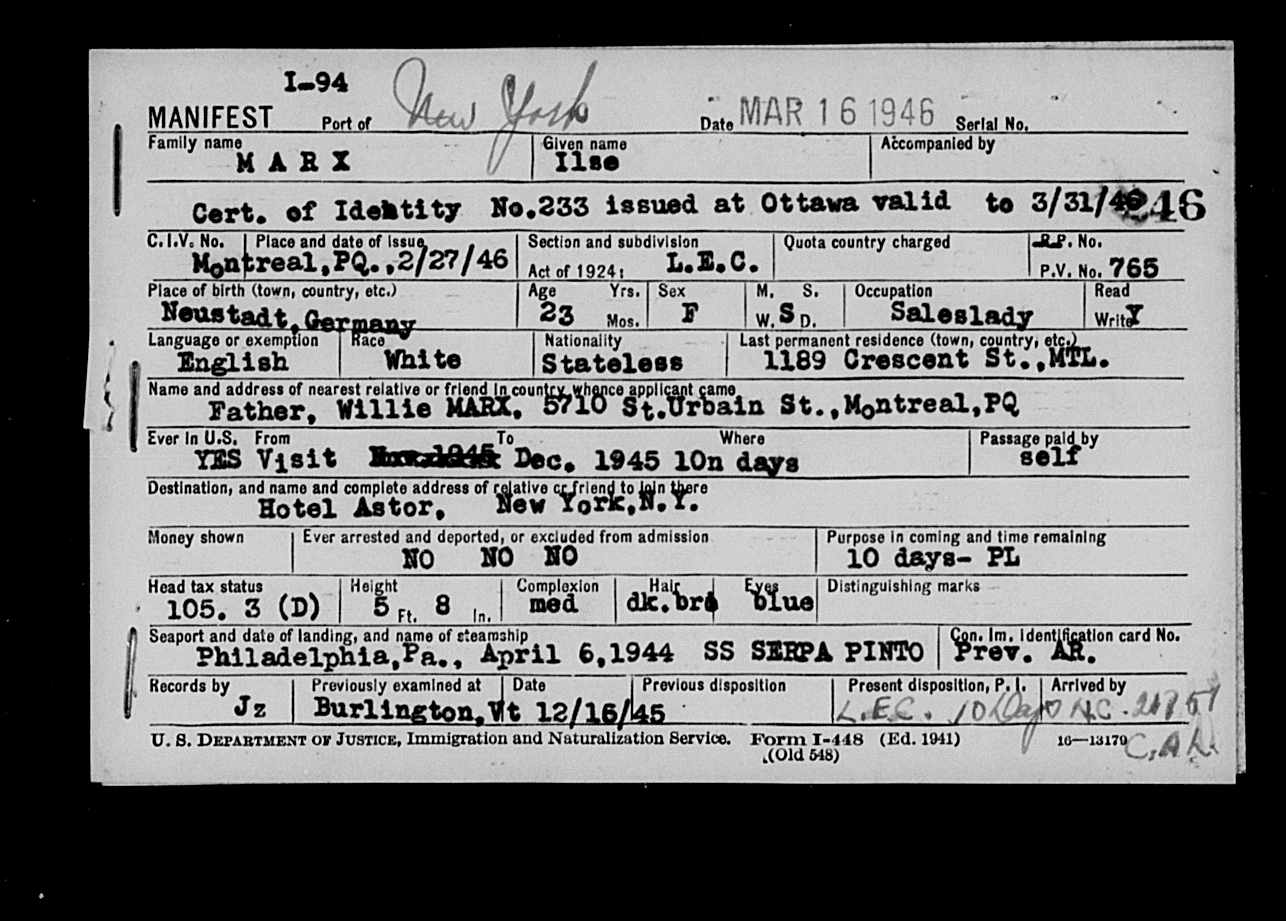 I-94
MANIFEST Port of New York Date MAR 16 1946 Serial No.
Family name Given name Accompanied by
M A R X Ilse
Cert. of Identity No.233 issued at Ottawa valid to 3/31/46 46
C.I.V. No. Place and date of issue Section and subdivision Quota country charged R.P. No.
Montreal,PQ.,2/27/46 Act of 1924: L.E.C. P.V. No. 765
Place of birth (town, country, etc.) Age Yrs. Sex M. S. Occupation Read
Neustadt,Germany 23 Mos. F W. S D. Saleslady Write Y
Language or exemption Race Nationality Last permanent residence (town, country, etc.)
English White Stateless 1189 Crescent St.,MTL.
Name and address of nearest relative or friend in country whence applicant came
Father, Willie MARX, 5710 St.Urbain St.,Montreal,PQ
Ever in U.S. From To Where Passage paid by
YES Visit Nov.1945 Dec. 1945 10n days self
Destination, and name and complete address of relative or friend to join there
Hotel Astor, New York,N.Y.
Money shown Ever arrested and deported, or excluded from admission Purpose in coming and time remaining
NO NO NO 10 days- PL
Head tax status Height Complexion Hair Eyes Distinguishing marks
105. 3 (D) 5 Ft. 8 In. med dk.bro blue
Seaport and date of landing, and name of steamship Con. Im. Identification card No.
Philadelphia,Pa., April 6,1944 SS SERPA PINTO Prev. AR.
Records by Previously examined at Date Previous disposition Present disposition, P. I. Arrived by
Jz Burlington,Vt 12/16/45 L.E.C. 10 Days
U. S. DEPARTMENT OF JUSTICE, Immigration and Naturalization Service. Form I-448 (Ed. 1941) 16—13179
(Old 548)